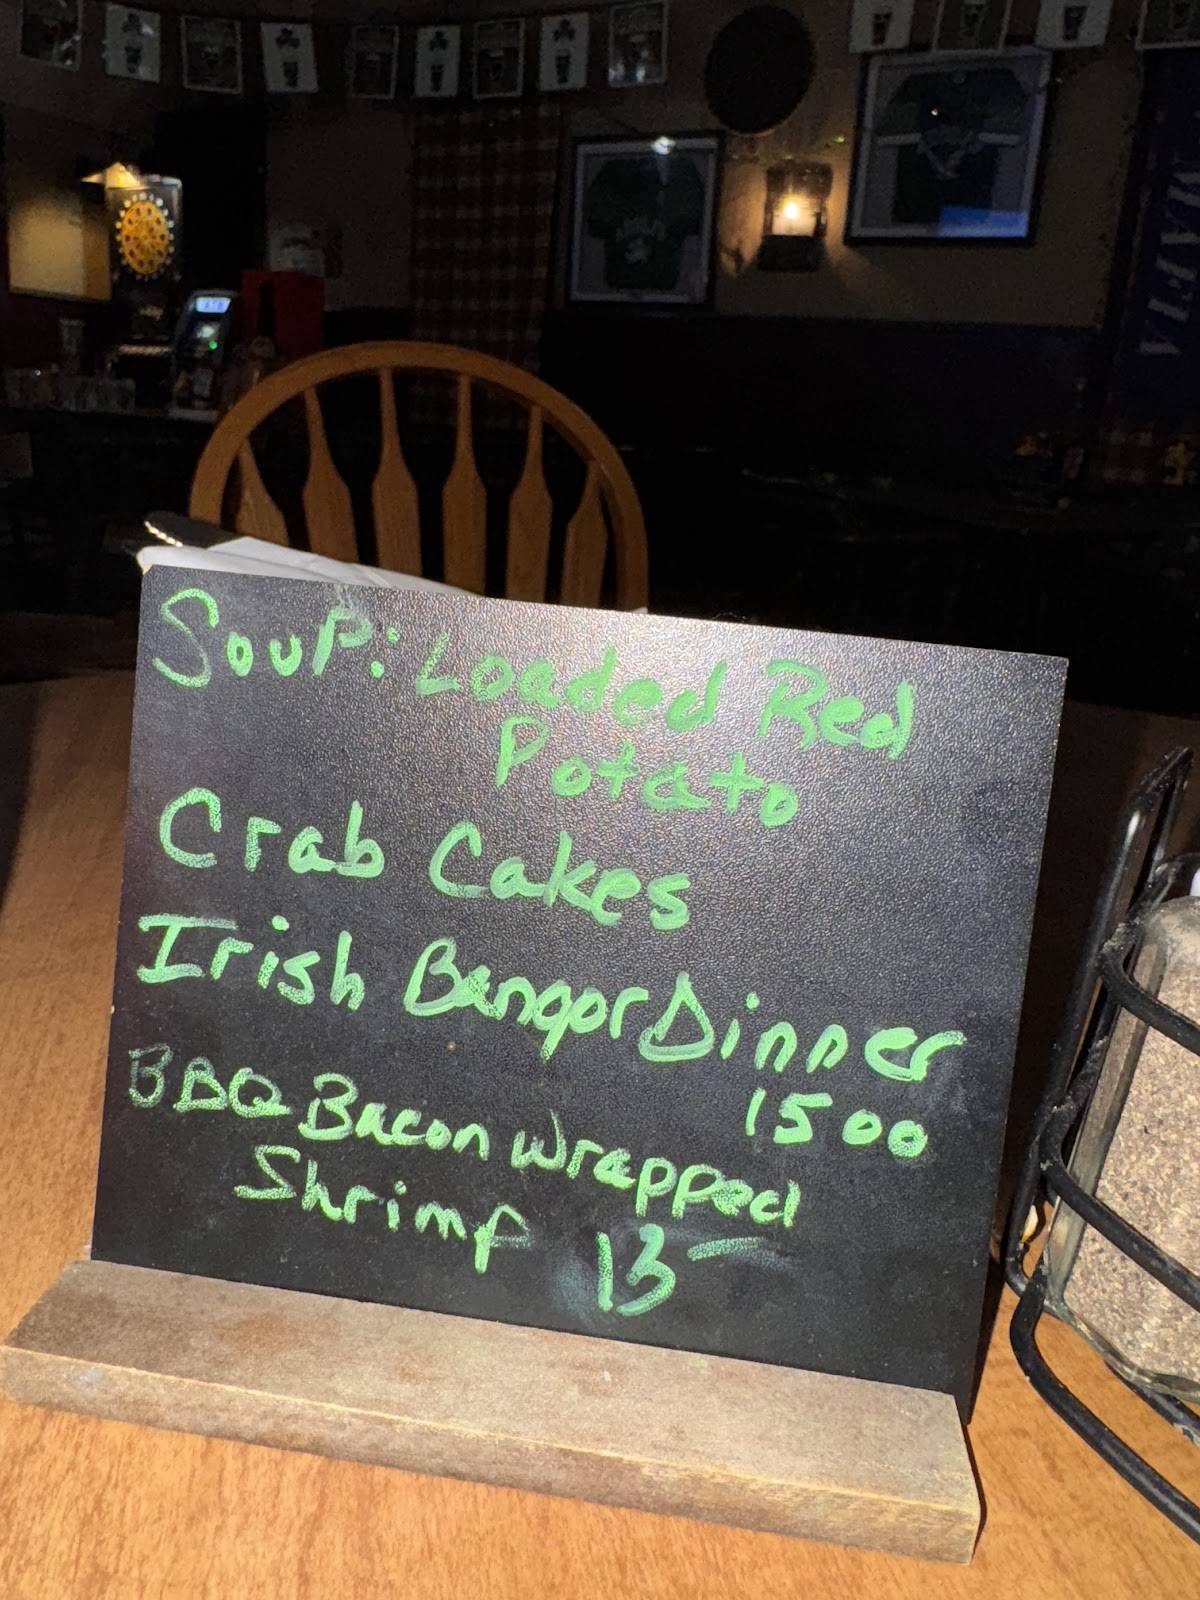 Soup: Loaded Red
Potato
Crab Cakes
Irish Bangor Dinner
1500
BBQ Bacon Wrapped
Shrimp 13-